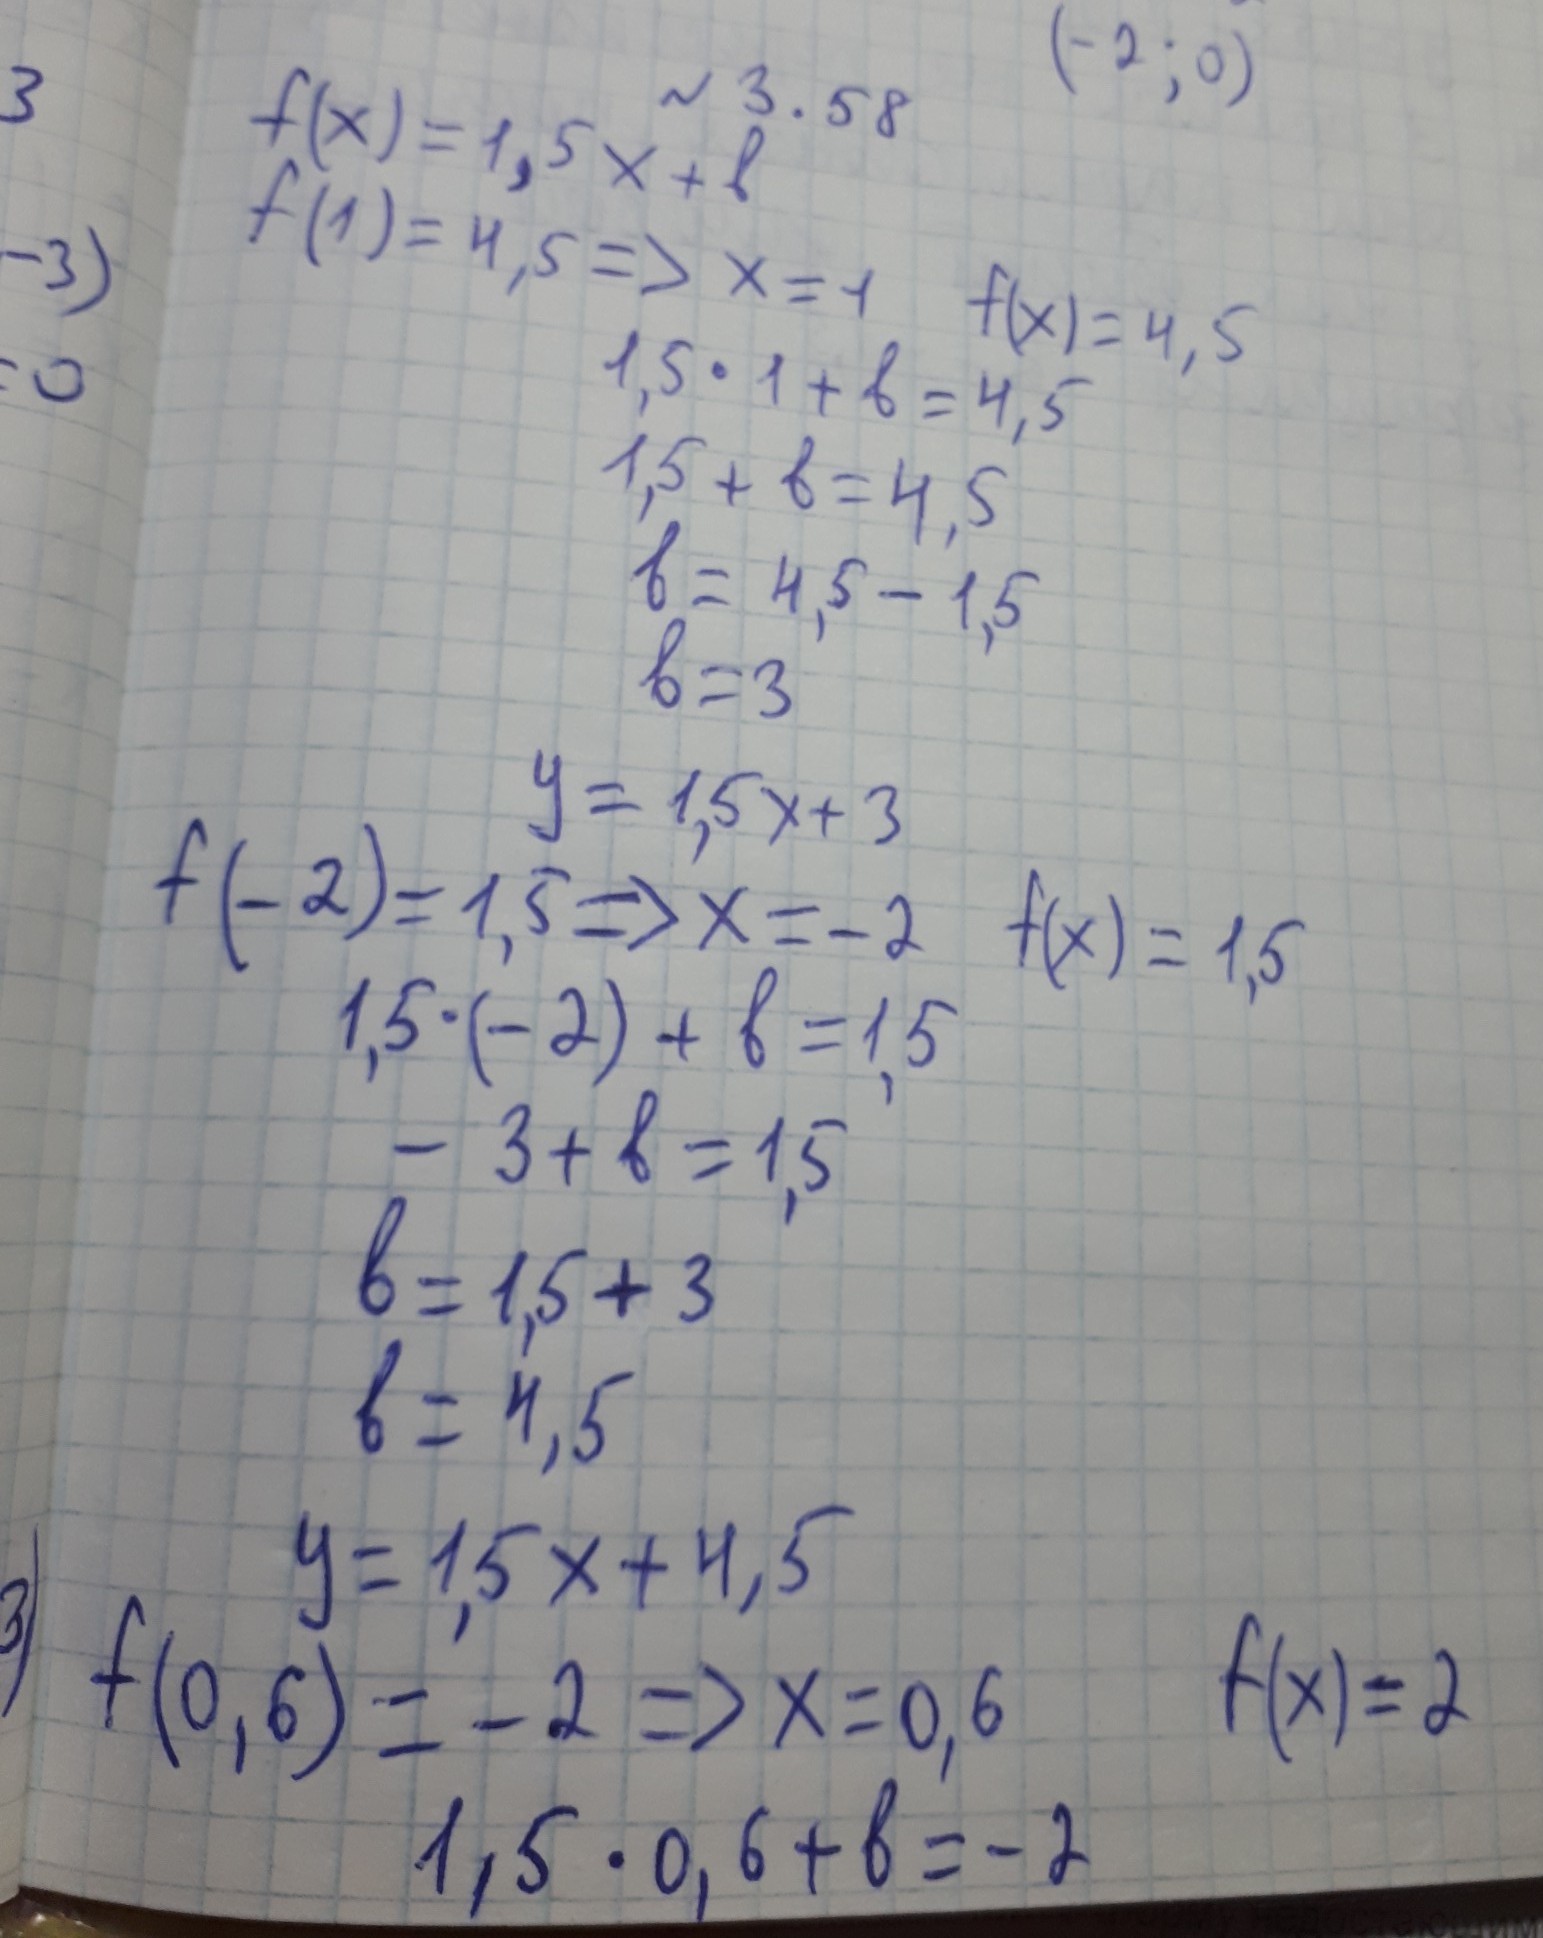 (-2;0)
3
~ 3.58
f(x) = 1,5x + b
f(1) = 4,5 => x = 1 f(x) = 4,5
-3)
1,5 · 1 + b = 4,5
= 0
1,5 + b = 4,5
b = 4,5 - 1,5
b = 3
y = 1,5x + 3
f(-2) = 1,5 => x = -2 f(x) = 1,5
1,5 · (-2) + b = 1,5
- 3 + b = 1,5
b = 1,5 + 3
b = 4,5
y = 1,5x + 4,5
3) f(0,6) = -2 => x = 0,6 f(x) = 2
1,5 · 0,6 + b = -2